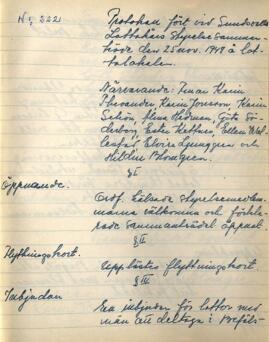 N: 222
Protokoll fört vid Sundsvalls
Lottakårs Styrelsesamman-
träde den 25 nov. 1948 å Lot-
talokalen.
Närvarande: Karin
Karin Jonsson, Karin
Schön, Alma Hedman, Göta Sö-
derborg, Ester Kettner, Ellen
Elvira Ljunggren och
Hildur Blomgren.
§ I
Öppnande.
Ordf. hälsade Styrelsemedlem-
marna välkomna och förkla-
rade sammanträdet öppnat.
§ II
Flyttningskort.
Upplästes flyttningskort.
§ III
Inbjudan
En inbjudan för lottor med
män att deltaga i Befäls-